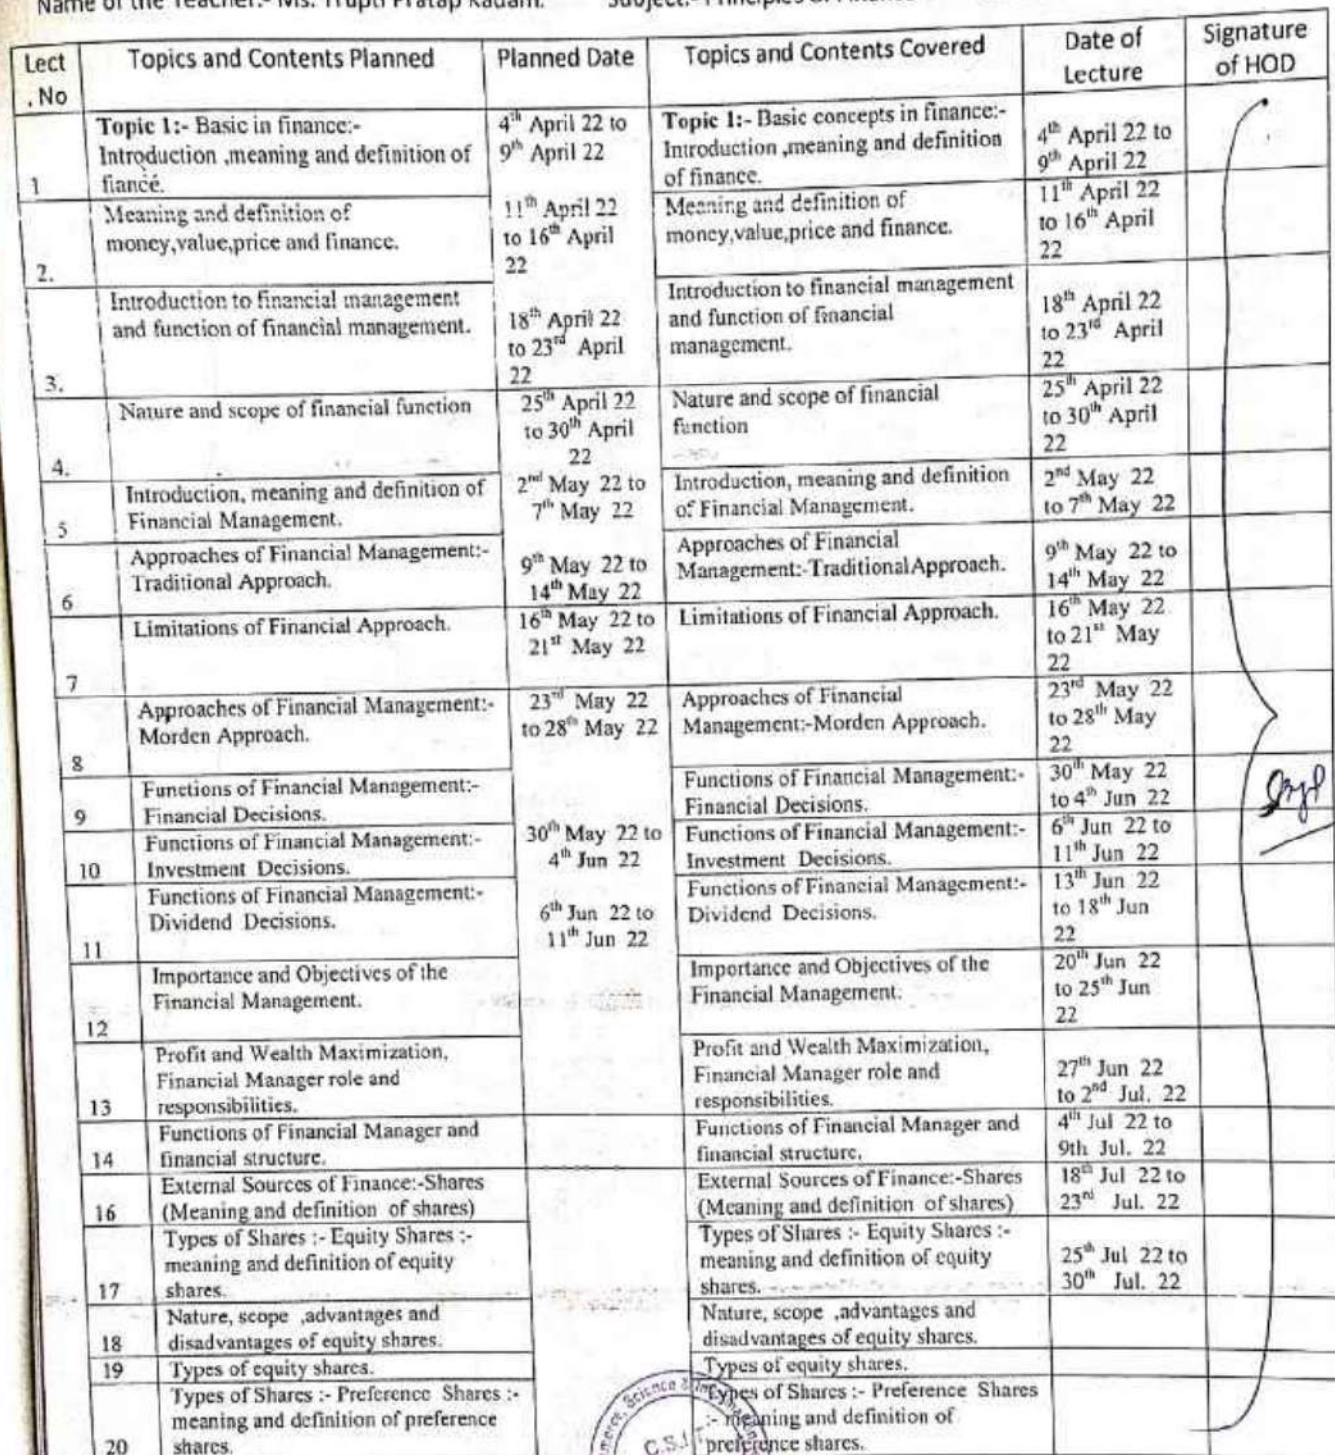 Name of the Teacher:- Ms. Trupti Pratap Kadam. Subject:- Principles of Finance
Lect . No | Topics and Contents Planned | Planned Date | Topics and Contents Covered | Date of Lecture | Signature of HOD
1 | Topic 1:- Basic in finance:- Introduction ,meaning and definition of fiancé. | 4th April 22 to 9th April 22 | Topic 1:- Basic concepts in finance:- Introduction ,meaning and definition of finance. | 4th April 22 to 9th April 22
2. | Meaning and definition of money,value,price and finance. | 11th April 22 to 16th April 22 | Meaning and definition of money,value,price and finance. | 11th April 22 to 16th April 22
3. | Introduction to financial management and function of financial management. | 18th April 22 to 23rd April 22 | Introduction to financial management and function of financial management. | 18th April 22 to 23rd April 22
4. | Nature and scope of financial function | 25th April 22 to 30th April 22 | Nature and scope of financial function | 25th April 22 to 30th April 22
5 | Introduction, meaning and definition of Financial Management. | 2nd May 22 to 7th May 22 | Introduction, meaning and definition of Financial Management. | 2nd May 22 to 7th May 22
6 | Approaches of Financial Management:- Traditional Approach. | 9th May 22 to 14th May 22 | Approaches of Financial Management:-Traditional Approach. | 9th May 22 to 14th May 22
7 | Limitations of Financial Approach. | 16th May 22 to 21st May 22 | Limitations of Financial Approach. | 16th May 22 to 21st May 22
8 | Approaches of Financial Management:- Morden Approach. | 23rd May 22 to 28th May 22 | Approaches of Financial Management:-Morden Approach. | 23rd May 22 to 28th May 22
9 | Functions of Financial Management:- Financial Decisions. | | Functions of Financial Management:- Financial Decisions. | 30th May 22 to 4th Jun 22
10 | Functions of Financial Management:- Investment Decisions. | 30th May 22 to 4th Jun 22 | Functions of Financial Management:- Investment Decisions. | 6th Jun 22 to 11th Jun 22
11 | Functions of Financial Management:- Dividend Decisions. | 6th Jun 22 to 11th Jun 22 | Functions of Financial Management:- Dividend Decisions. | 13th Jun 22 to 18th Jun 22
12 | Importance and Objectives of the Financial Management. | | Importance and Objectives of the Financial Management. | 20th Jun 22 to 25th Jun 22
13 | Profit and Wealth Maximization, Financial Manager role and responsibilities. | | Profit and Wealth Maximization, Financial Manager role and responsibilities. | 27th Jun 22 to 2nd Jul. 22
14 | Functions of Financial Manager and financial structure. | | Functions of Financial Manager and financial structure. | 4th Jul 22 to 9th Jul. 22
16 | External Sources of Finance:-Shares (Meaning and definition of shares) | | External Sources of Finance:-Shares (Meaning and definition of shares) | 18th Jul 22 to 23rd Jul. 22
17 | Types of Shares :- Equity Shares :- meaning and definition of equity shares. | | Types of Shares :- Equity Shares :- meaning and definition of equity shares. | 25th Jul 22 to 30th Jul. 22
18 | Nature, scope ,advantages and disadvantages of equity shares. | | Nature, scope ,advantages and disadvantages of equity shares.
19 | Types of equity shares. | | Types of equity shares.
20 | Types of Shares :- Preference Shares :- meaning and definition of preference shares. | | Types of Shares :- Preference Shares :- meaning and definition of preference shares.
Science &
C.S.I.T.